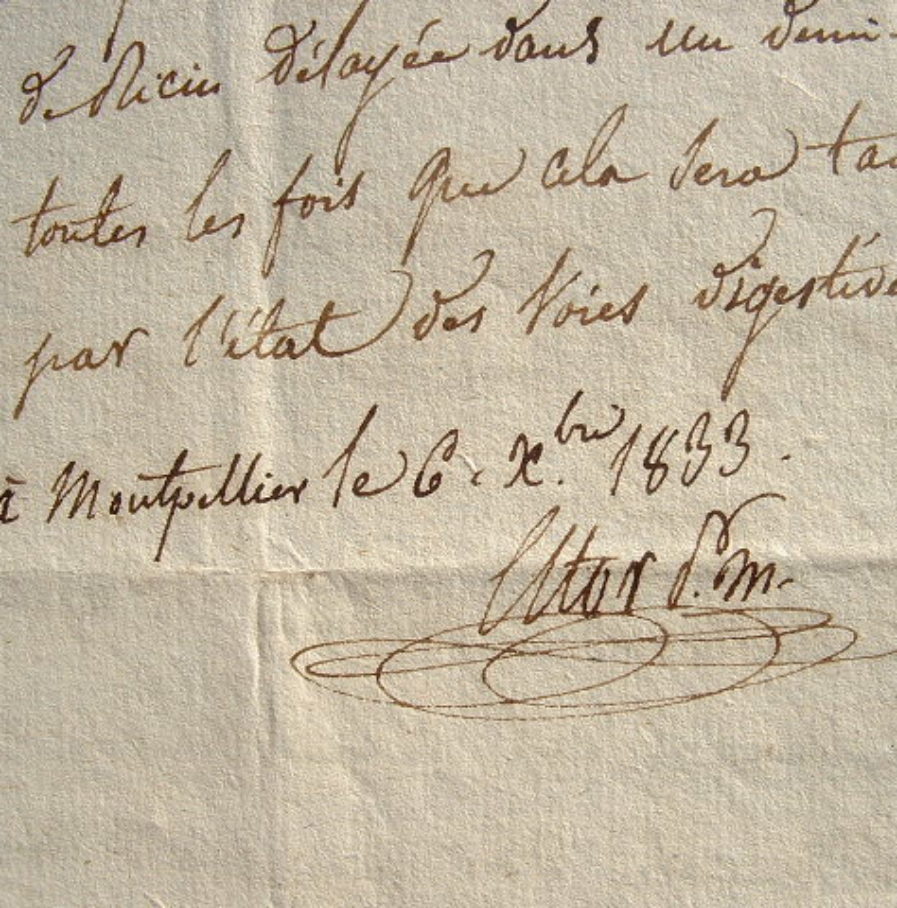 de Ricin délayée dans un demi-
toutes les fois que cela sera
par l'état des Voies digestive
à Montpellier le 6. Xbre 1833.
D. m.